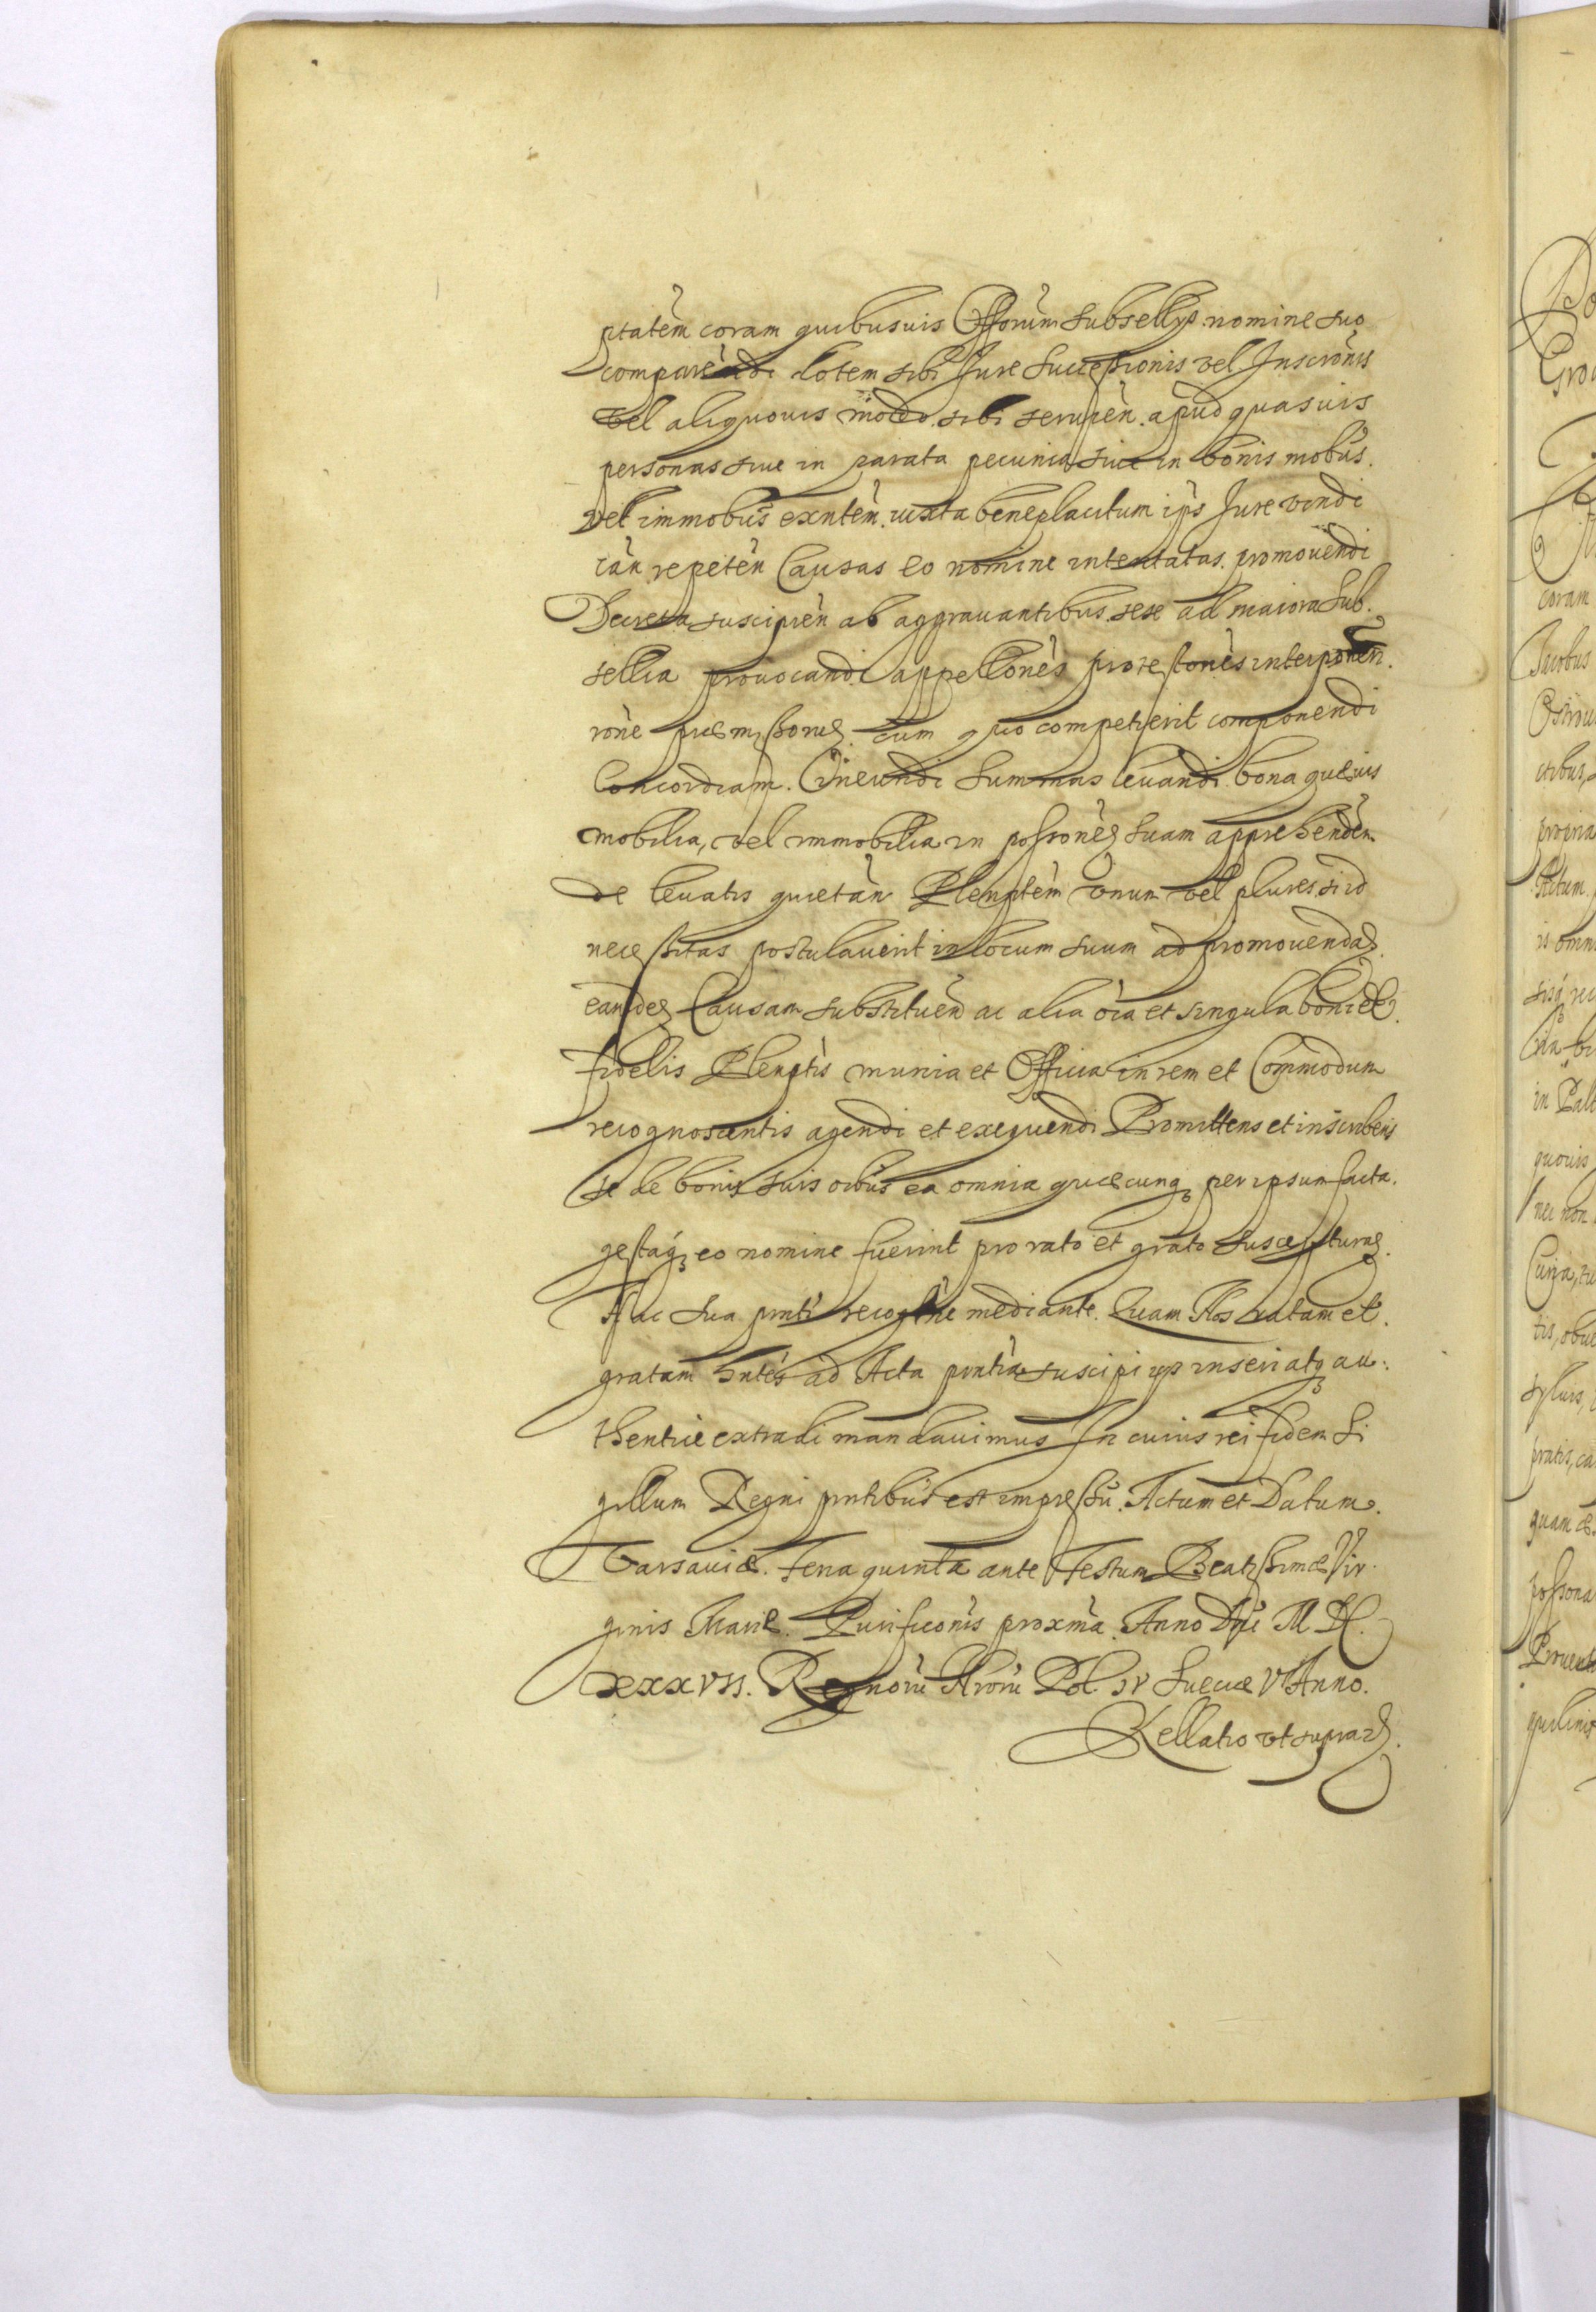 ptatem coram quibusuis Offorum subsellys nomine suo
comparendi dotem sibi Jure Successionis vel Inscronis
vel aliquouis modo sibi seruien. apud quasuis
personas siue in parata pecunia siue in bonis mobus.
vel immobus exntem iuxta beneplacitum ips Jure vendi
can repeten Causas eo nomine intentatas promouendi
Decreta suscipien ab aggrauantibus sese ad maiora Sub.
sellia prouocandi appellones protestones interponen.
rone praemissorum cum quo competierit componendi
Concordiam. Ineundi Summas leuandi bona quaeuis
mobilia, vel immobilia in possonem suam apprehenden
de leuatis quietan Plenptem vnum vel plures si id
necessitas postulauerit in locum suum ad promouendam
eandem Causam substituen ac alia oia et singula boni et
fidelis Plenptis munia et Officia in rem et Commodum
recognoscentis agendi et exequendi Promittens et inscribens
se de bonis suis oibus ea omnia quaecunq per ipsum facta.
gestaq eo nomine fuerint pro rato et grato suscepturam.
Hac sua pnti recogne mediante. Quam Nos ratam et.
gratam hntes ad Acta pntia suscipi inseri atq au:
thentice extradi mandauimus In cuius rei fidem Si
gillum Regni pntibus est impressu. Actum et Datum.
Varsauiae. Feria quinta ante Festum Beatissimae Vir
ginis Mariae. Purificonis proxma Anno Dni M DC.
XXXVII. Regnoru Nroru Pol IV Sueciae V Anno.
Rellatio vt supra.
coram
Jacobus
propria
Actum
in Pala
quouis
nec non
Curia,
pratis, ca
quam